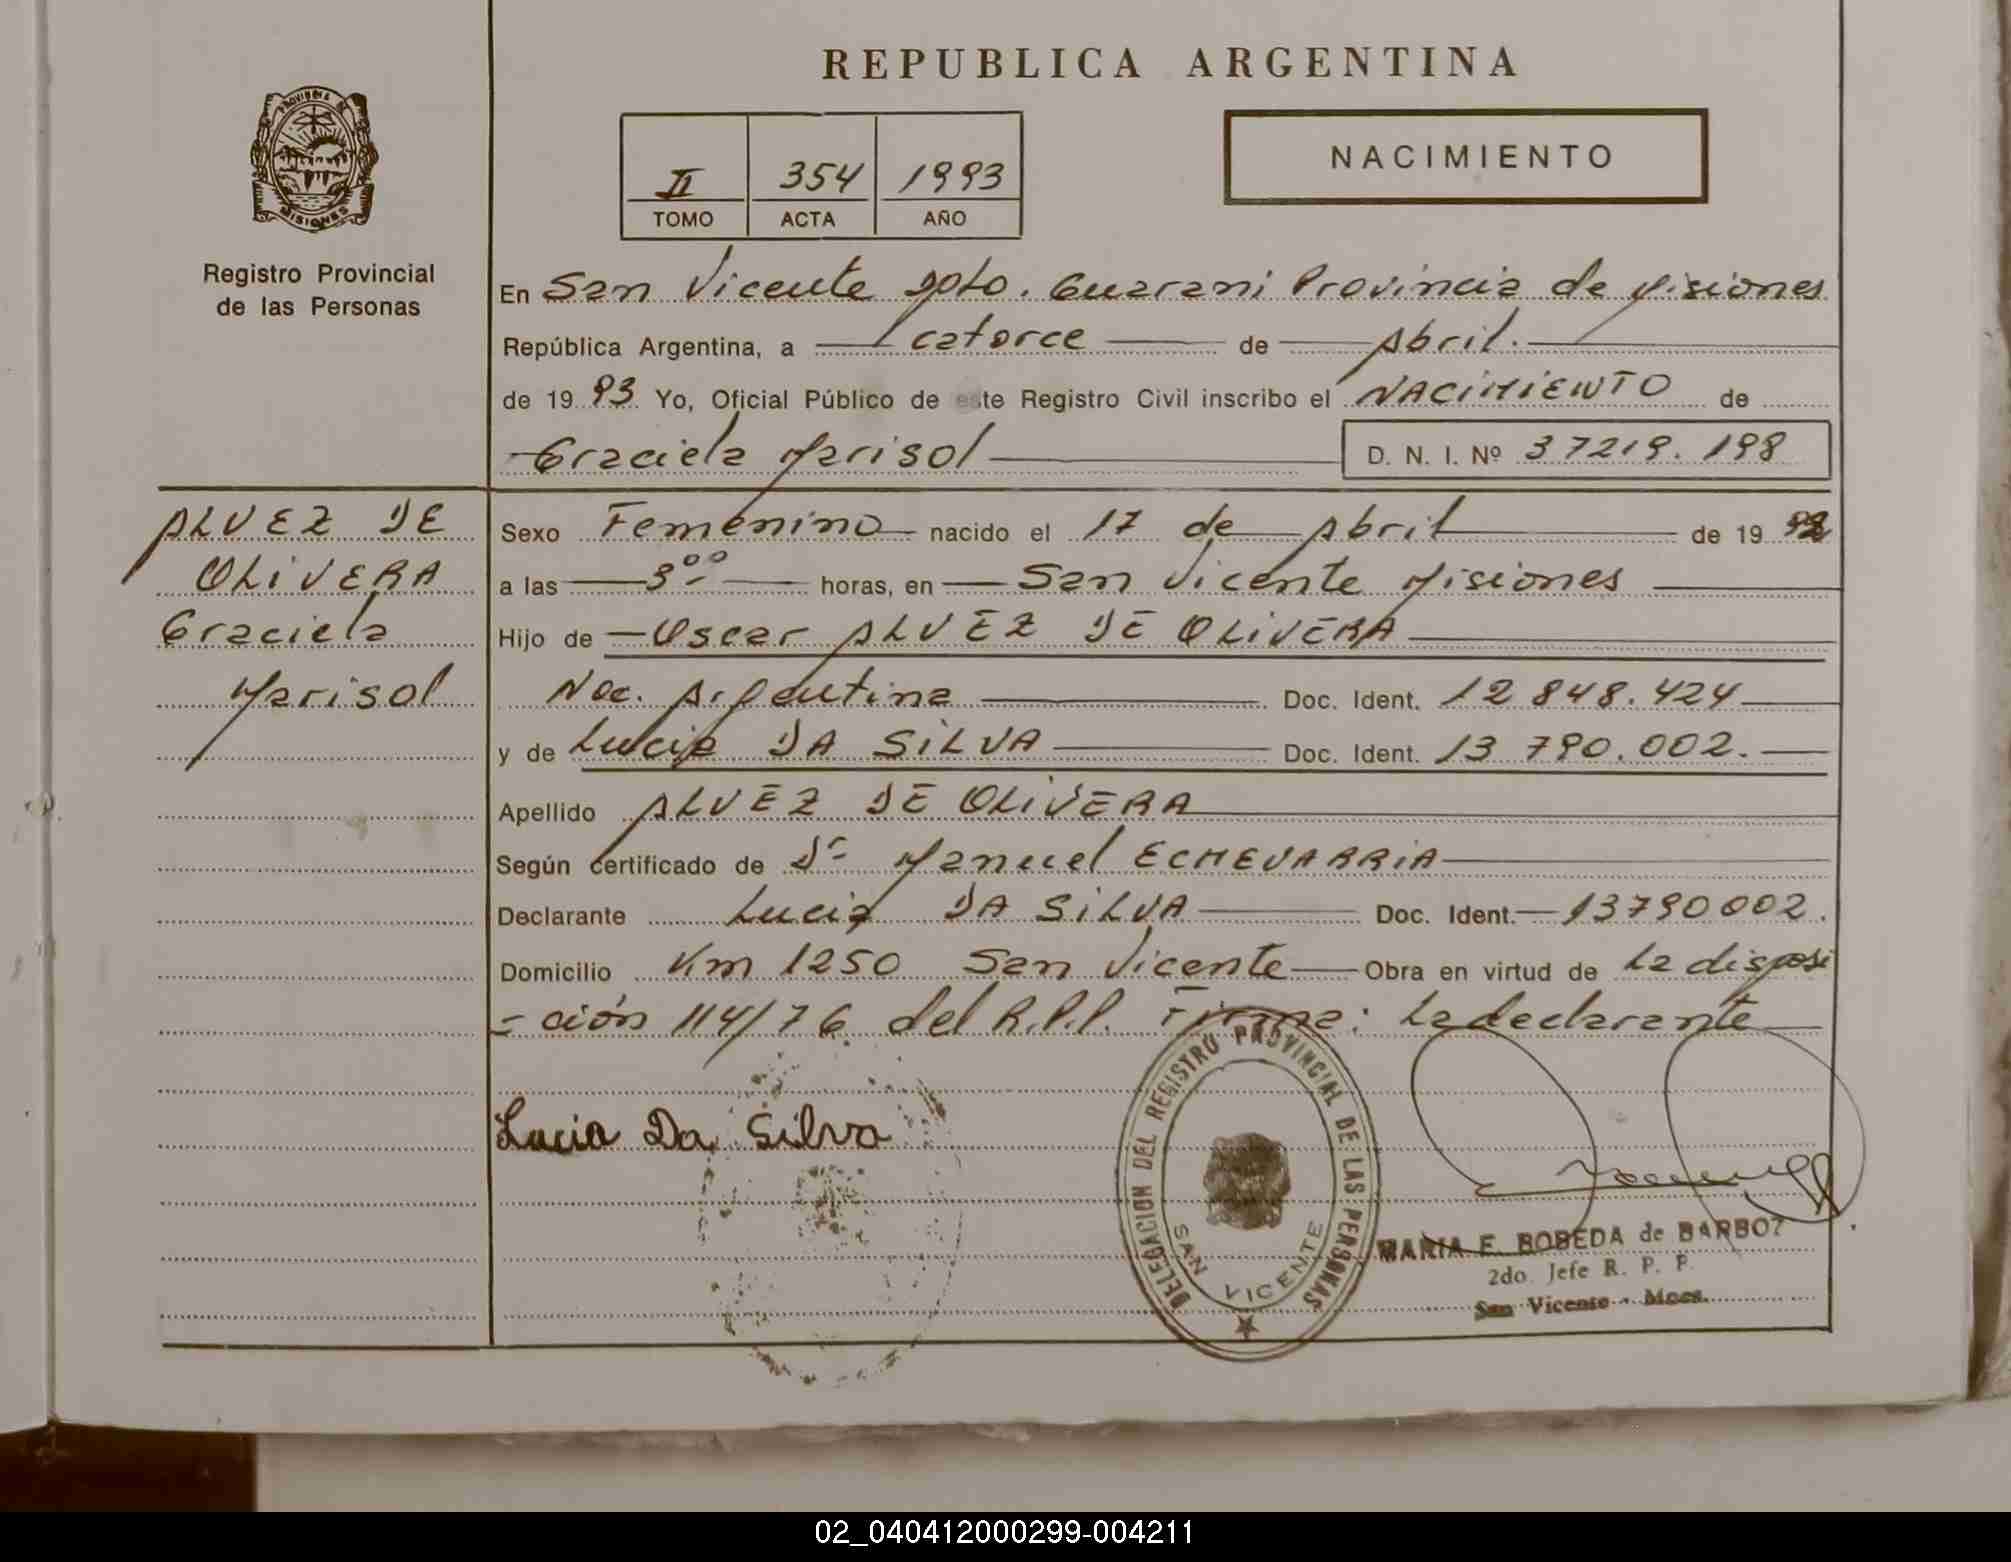 REPUBLICA ARGENTINA
PROVINCIA DE
MISIONES
Registro Provincial
de las Personas
II 354 1993
TOMO ACTA AÑO
NACIMIENTO
En San Vicente Dpto. Guarani Provincia de Misiones
República Argentina, a catorce de Abril.
de 1993 Yo, Oficial Público de este Registro Civil inscribo el NACIMIENTO de
Graciela Marisol D. N. I. Nº 37219.198
ALVEZ DE
OLIVERA
Graciela
Marisol
Sexo Femenino nacido el 17 de Abril de 19
a las horas, en San Vicente Misiones
Hijo de Oscar ALVEZ DE OLIVERA
Nac. Argentina Doc. Ident. 12 848.424
y de Lucia DA SILVA Doc. Ident. 13 790.002.
Apellido ALVEZ DE OLIVERA
Según certificado de Dr Manuel ECHEVARRIA
Declarante Lucia DA SILVA Doc. Ident. 13790002.
Domicilio Km 1250 San Vicente Obra en virtud de La disposi
- ción 114/76 del R.P.P. Firma: La declarante
Lucia Da Silva
DELEGACION DEL REGISTRO PROVINCIAL DE LAS PERSONAS
SAN VICENTE
MARIA E. BOBEDA de BARBOZ
2do. Jefe R. P. P.
San Vicente - Mnes.
02_040412000299-004211